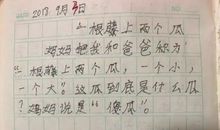 2017. 9月3日
一根藤上两个瓜
妈妈把我和爸爸称为
“一根藤上两个瓜,一个小,
一个大”这瓜到底是什么瓜
?妈妈说是“傻瓜”。